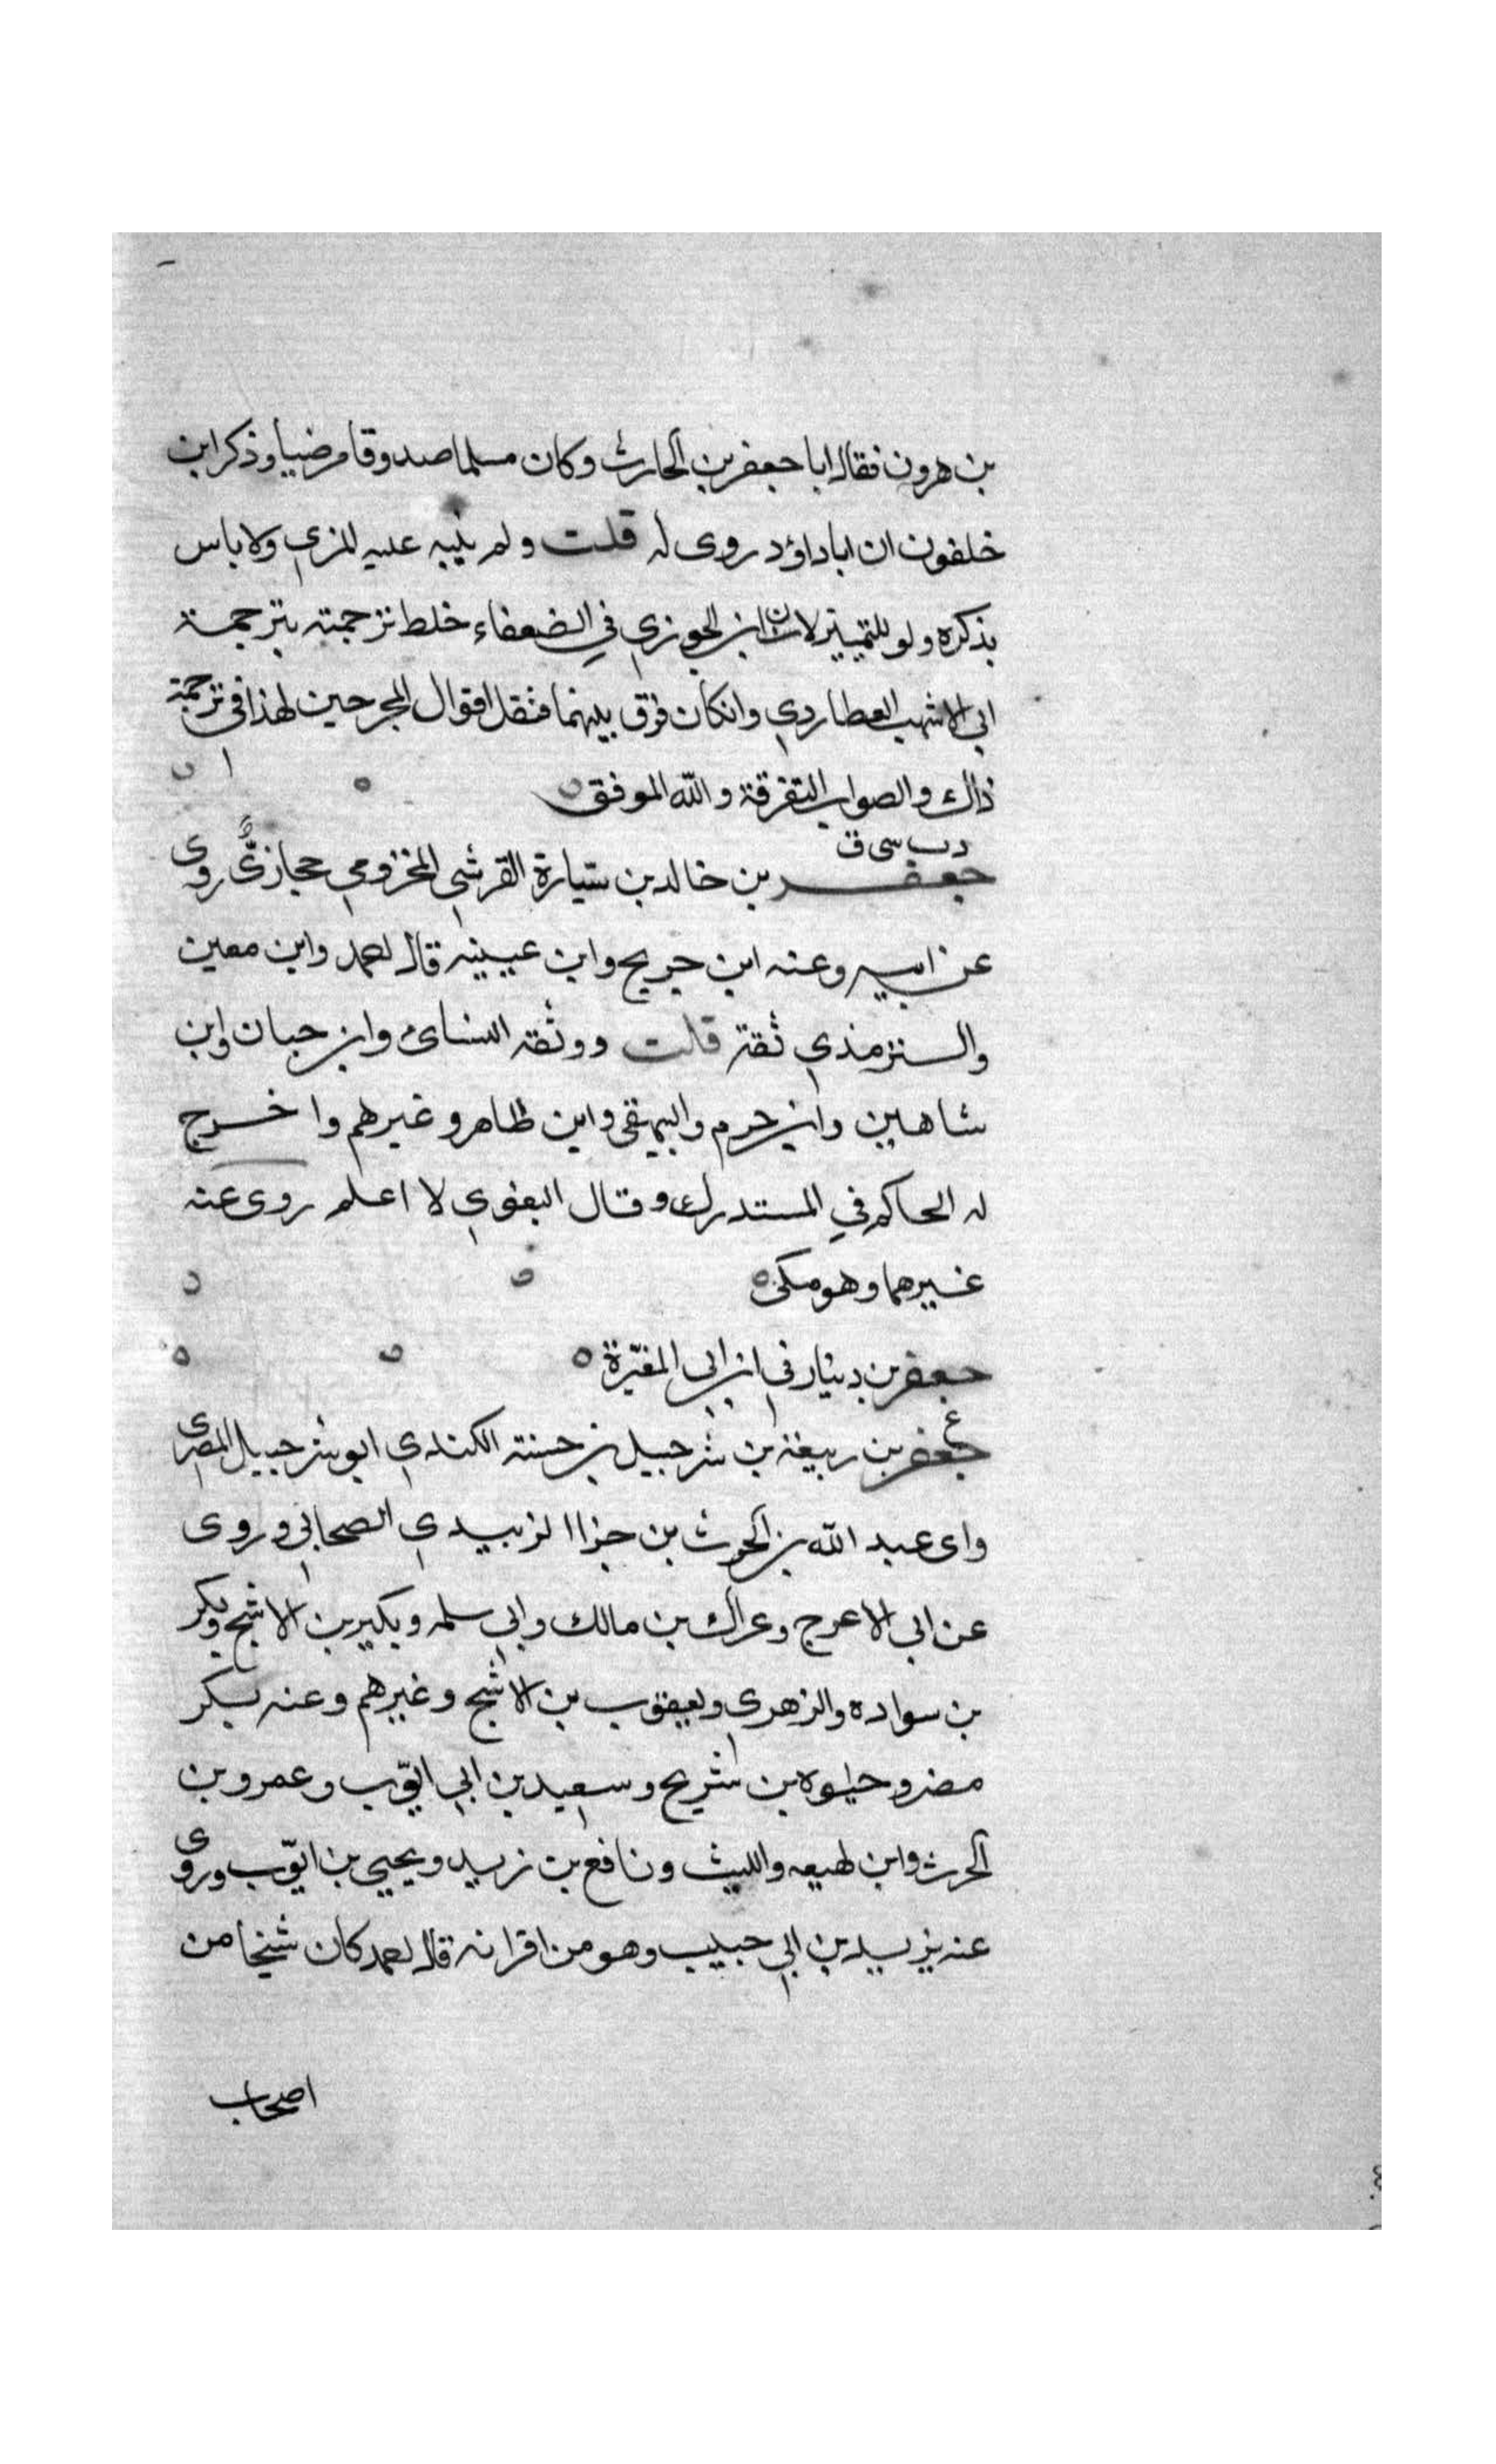 بن هرون فقال ابا جعفر بن الحارث وكان مسلما صدوقا مرضيا وذكر ابن
خلفون ان ابا داؤد روى له قلت ولم ينبه عليه المزي ولا باس
بذكره ولو للتمييز لان ابن الجوزي في الضعفاء خلط ترجمته بترجمة
ابي الاشهب العطاردي وانكان فرق بينهما فنقل اقوال المجرحين لهذا في ترجمة
ذاك والصواب التفرقة والله الموفق
د ت سي ق
جعفر بن خالد بن سيارة القرشي المخزومي حجازيٌّ روى
عن ابيه وعنه ابن جريج وابن عيينه قال احمد وابن معين
والترمذي ثقة قلت ووثقه النسائ وابن حبان وابن
شاهين وابن حزم والبيهقي وابن طاهر وغيرهم واخرج
له الحاكم في المستدرك وقال البغوي لا اعلم روى عنه
غيرهما وهو مكي
جعفر بن دينار في ابن ابي المغيرة
ع
جعفر بن ربيعة بن شرحبيل بن حسنة الكندي ابو شرحبيل المصري
راى عبد الله بن الحرث بن جزا الزبيدي الصحابي وروى
عن ابي الاعرج وعراك بن مالك وابي سلمه وبكير بن الاشج وبكر
بن سواده والزهري ويعقوب بن الاشج وغيرهم وعنه بكر
مضر وحيوه بن شريح وسعيد بن ابي ايوب وعمرو بن
الحرث وابن لهيعه والليث ونافع بن زيد ويحيي بن ايوب وروى
عنه يزيد بن ابي حبيب وهو من اقرانه قال احمد كان شيخا من
اصحاب